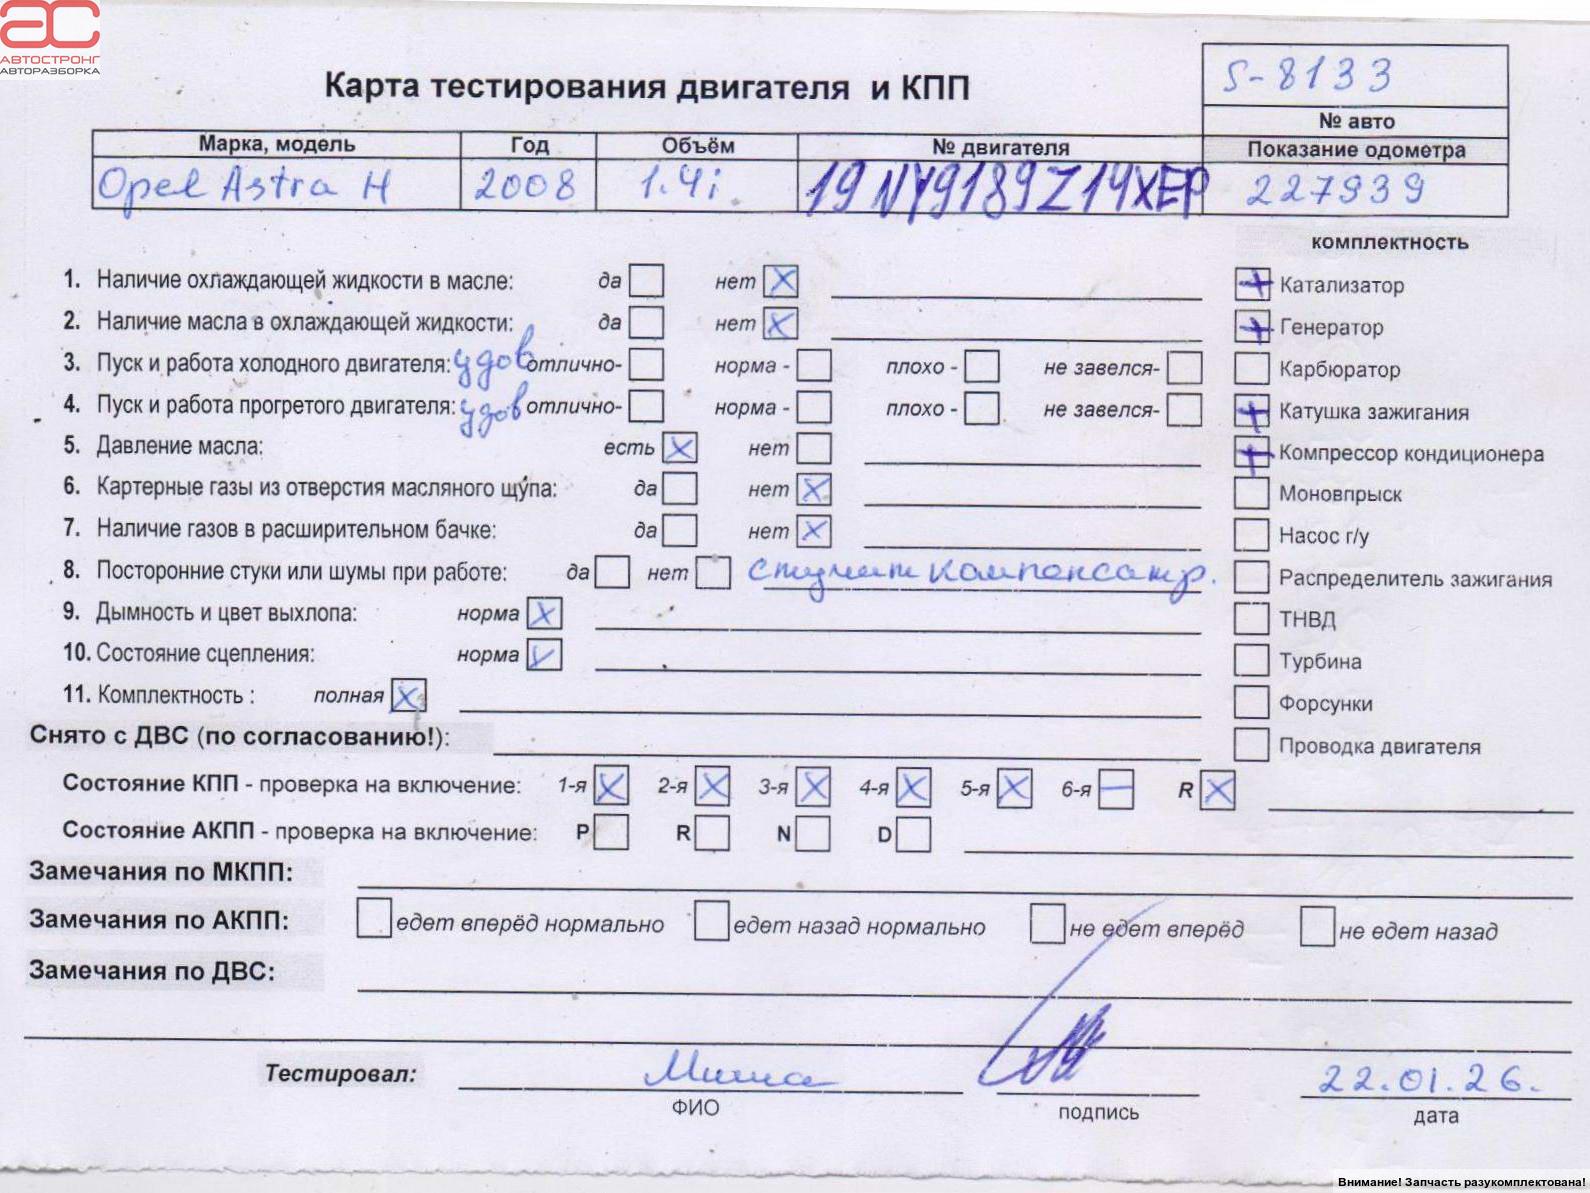 АС
АВТОСТРОНГ
АВТОРАЗБОРКА
Карта тестирования двигателя и КПП
S-8133
№ авто
Марка, модель Год Объём № двигателя Показание одометра
Opel Astra H 2008 1.4i 19NY9189Z14XEP 227939
комплектность
1. Наличие охлаждающей жидкости в масле: да нет X
Катализатор +
2. Наличие масла в охлаждающей жидкости: да нет X
Генератор +
3. Пуск и работа холодного двигателя: удов отлично- норма - плохо - не завелся-
Карбюратор
4. Пуск и работа прогретого двигателя: удов отлично- норма - плохо - не завелся-
+ Катушка зажигания
5. Давление масла: есть X нет
+ Компрессор кондиционера
6. Картерные газы из отверстия масляного щупа: да нет X
Моновпрыск
7. Наличие газов в расширительном бачке: да нет X
Насос г/у
8. Посторонние стуки или шумы при работе: да нет стучит компенсатр.
Распределитель зажигания
9. Дымность и цвет выхлопа: норма X
ТНВД
10. Состояние сцепления: норма V
Турбина
11. Комплектность : полная X
Форсунки
Снято с ДВС (по согласованию!):
Проводка двигателя
Состояние КПП - проверка на включение: 1-я X 2-я X 3-я X 4-я X 5-я X 6-я — R X
Состояние АКПП - проверка на включение: P R N D
Замечания по МКПП:
Замечания по АКПП: едет вперёд нормально едет назад нормально не едет вперёд не едет назад
Замечания по ДВС:
Тестировал: Миша 22.01.26.
ФИО подпись дата
Внимание! Запчасть разукомплектована!